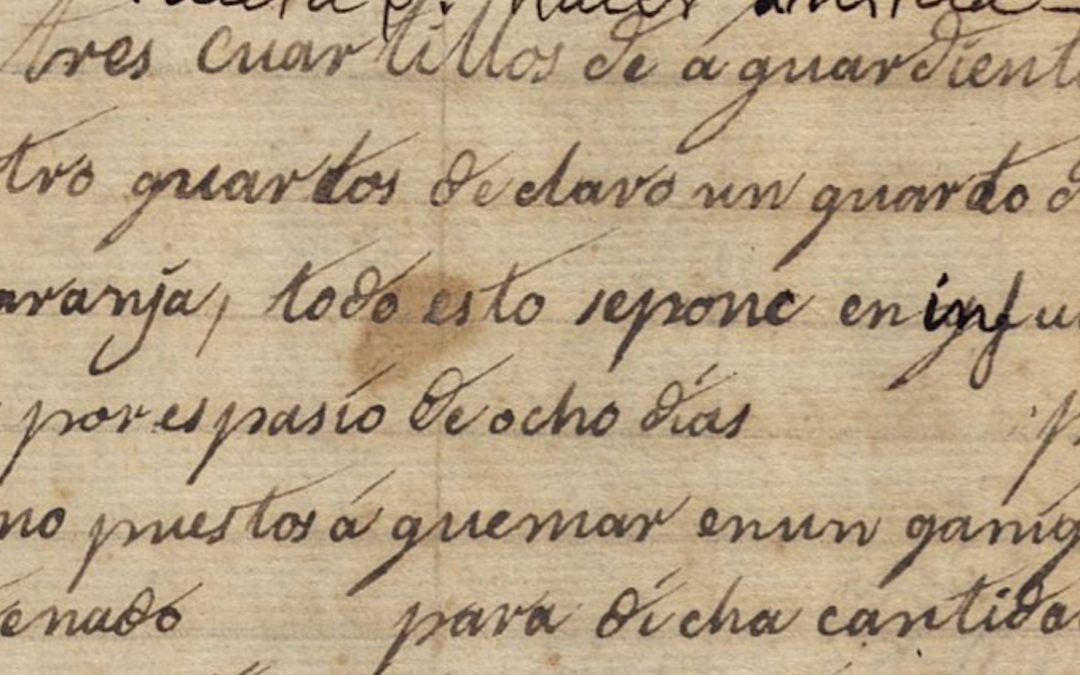 tres cuartillos de aguardiente
tro quartos de clavo un quarto d
aranja, todo esto se pone en infu
por espasio de ocho días
no puestos á quemar en un ganig
enado para dicha cantida